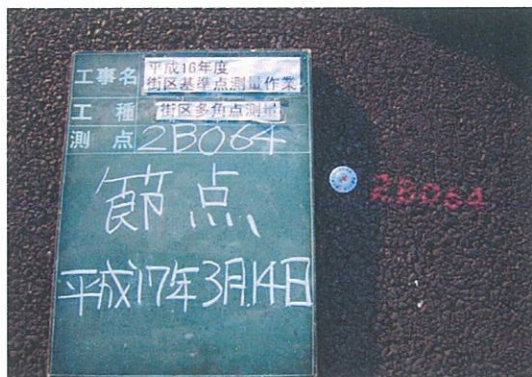 工事名
平成16年度
街区基準点測量作業
工種 街区多角点測量
測点 2B064
節点
平成17年3月14日
2B064